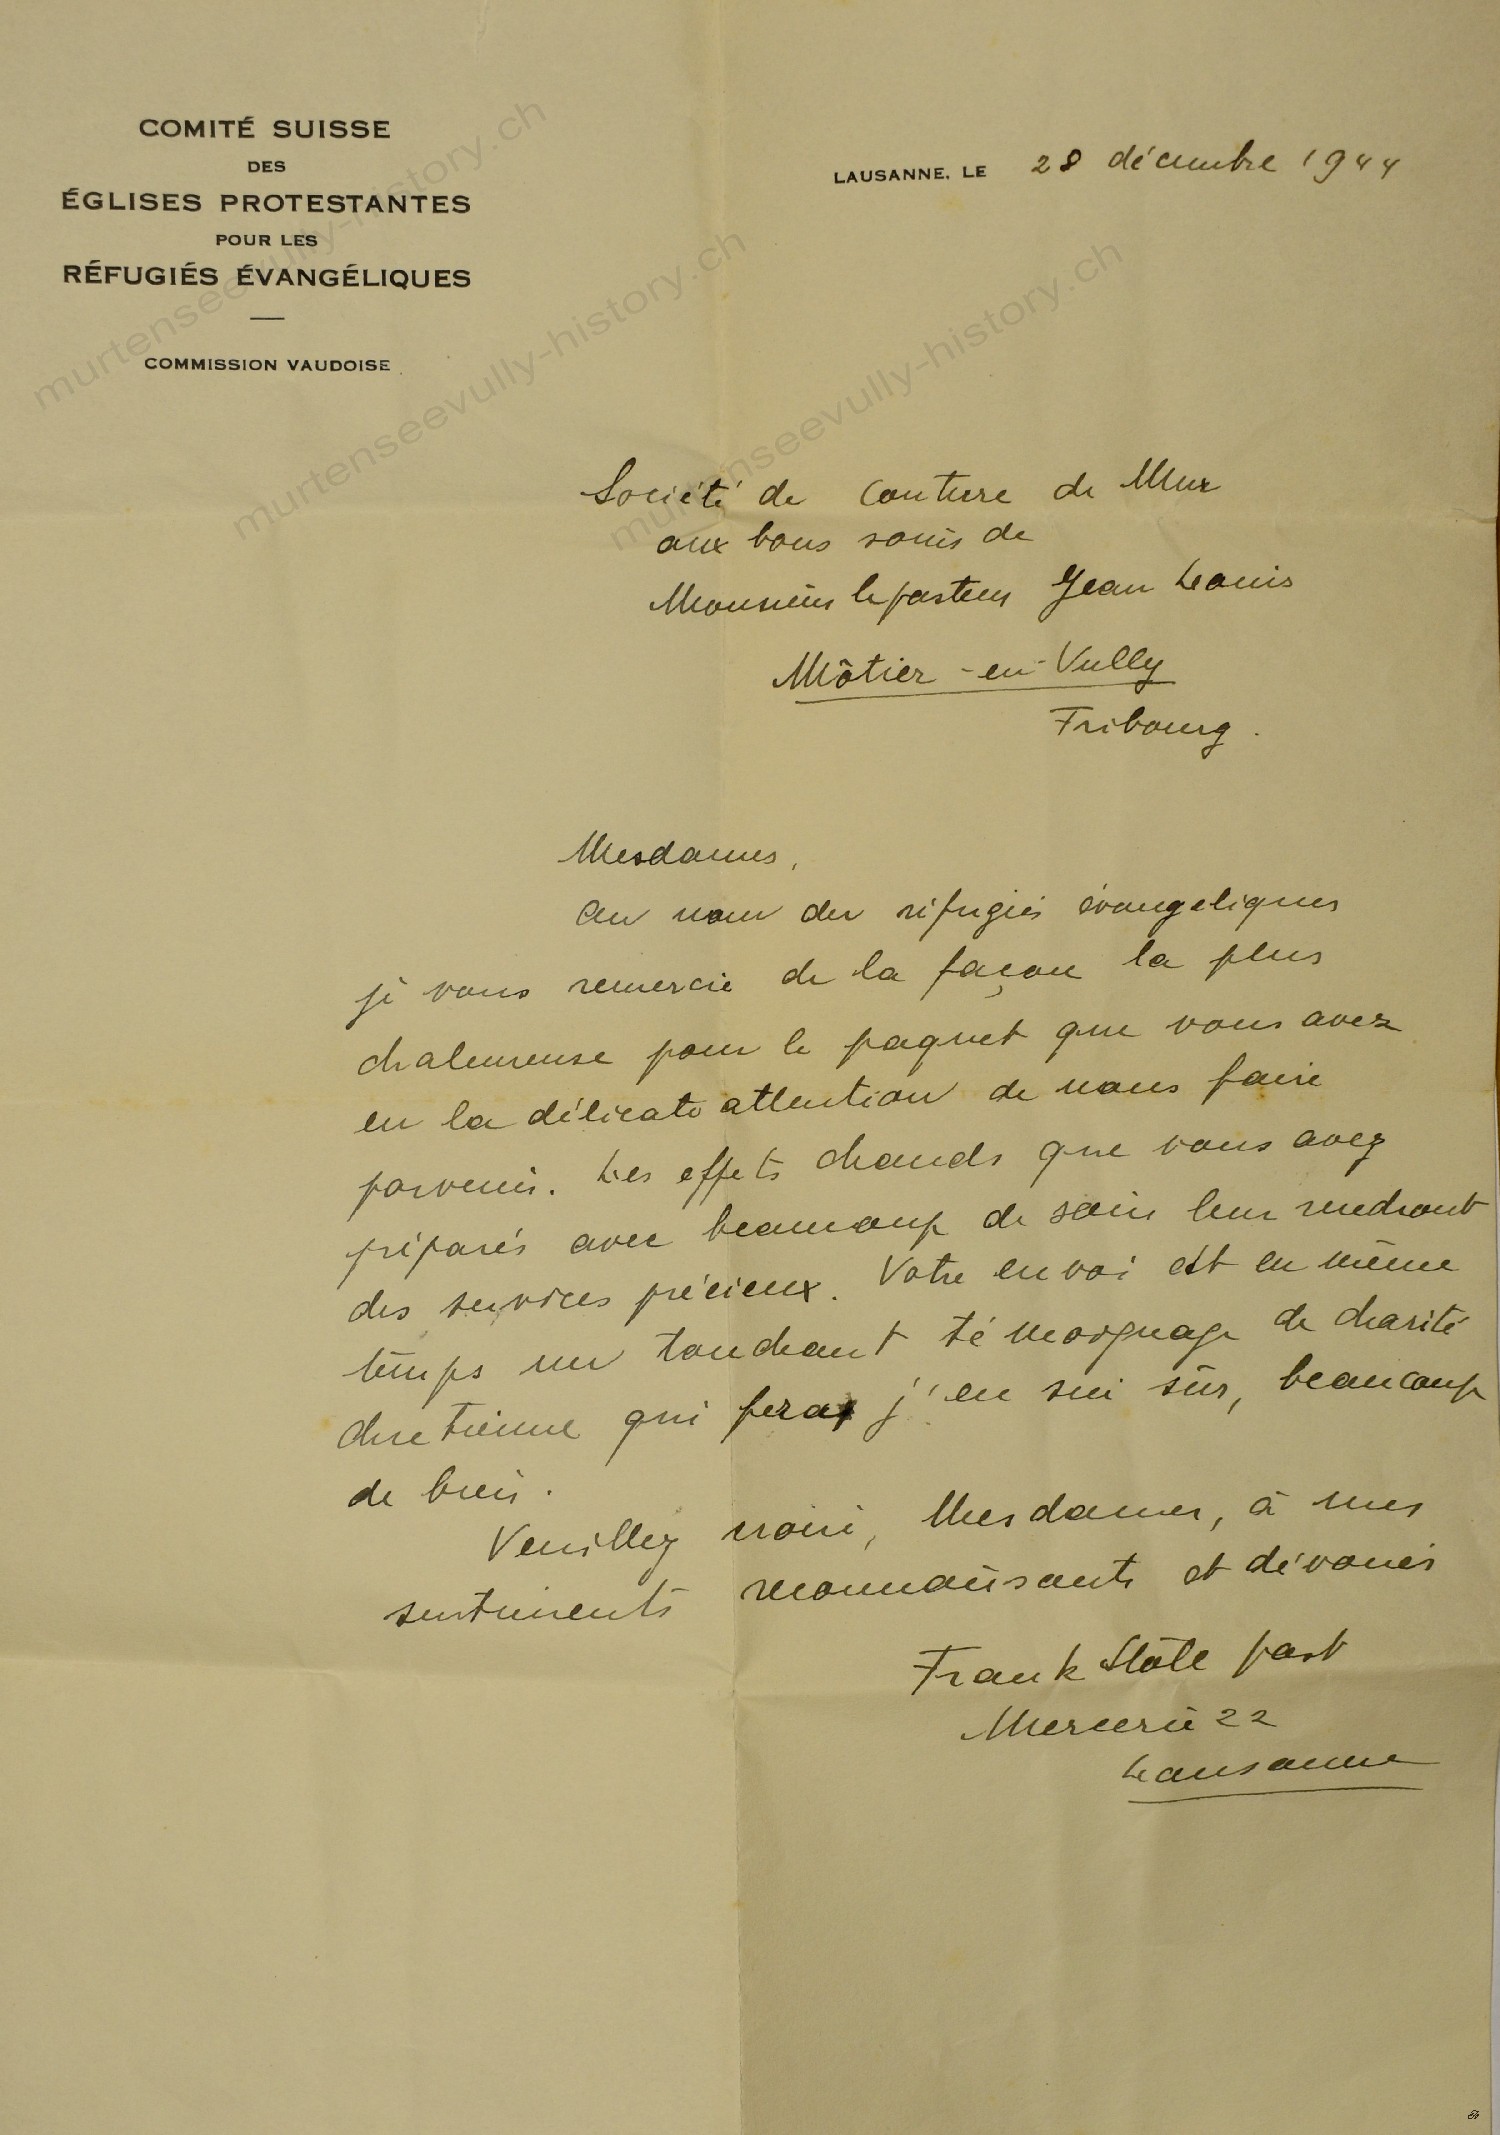 COMITÉ SUISSE
DES
ÉGLISES PROTESTANTES
POUR LES
RÉFUGIÉS ÉVANGÉLIQUES
COMMISSION VAUDOISE
LAUSANNE, LE 28 décembre 1944
Société de couture de Mur
aux bons soins de
Monsieur le pasteur Jean Louis
Môtier-en-Vully
Fribourg.
Mesdames,
Au nom des réfugiés évangeliques
je vous remercie de la façon la plus
chaleureuse pour le paquet que vous avez
eu la délicate attention de nous faire
parvenir. Les effets chauds que vous avez
préparés avec beaucoup de soin leur rendront
des services précieux. Votre envoi est en même
temps un touchant témoignage de charité
chretienne qui fera j'en sui sûr, beaucoup
de bien.
Veuillez croire, Mesdames, à mes
sentiments reconnaissants et dévoués
Frank past
Mercerie 22
Lausanne
murtenseevully-history.ch
murtenseevully-history.ch
murtenseevully-history.ch